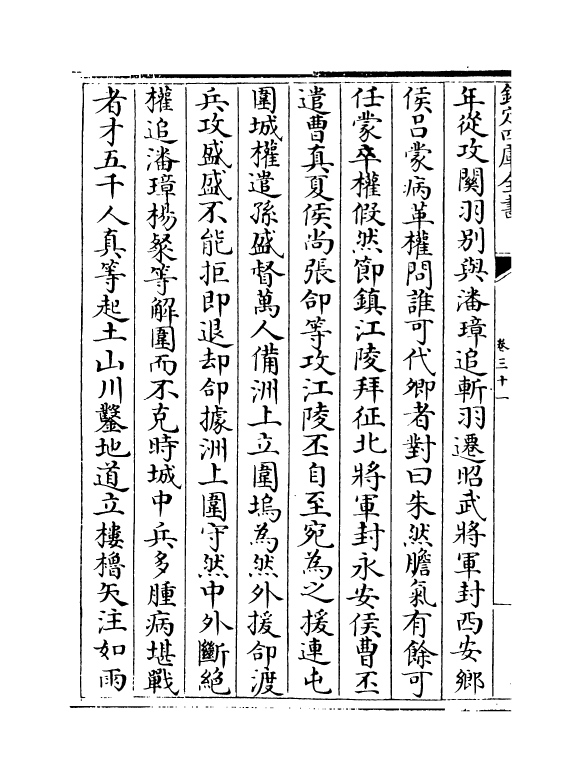 欽定四庫全書
卷三十一
年從攻關羽别與潘璋追斬羽遷昭武將軍封西安鄉
侯吕蒙病革權問誰可代卿者對曰朱然膽氣有餘可
任蒙卒權假然節鎮江陵拜征北將軍封永安侯曹丕
遣曹真夏侯尚張郃等攻江陵丕自至宛為之援連屯
圍城權遣孫盛督萬人備洲上立圍塢為然外援郃渡
兵攻盛盛不能拒即退却郃據洲上圍守然中外斷絶
權追潘璋楊粲等解圍而不克時城中兵多腫病堪戰
者才五千人真等起土山川鑿地道立樓櫓矢注如雨